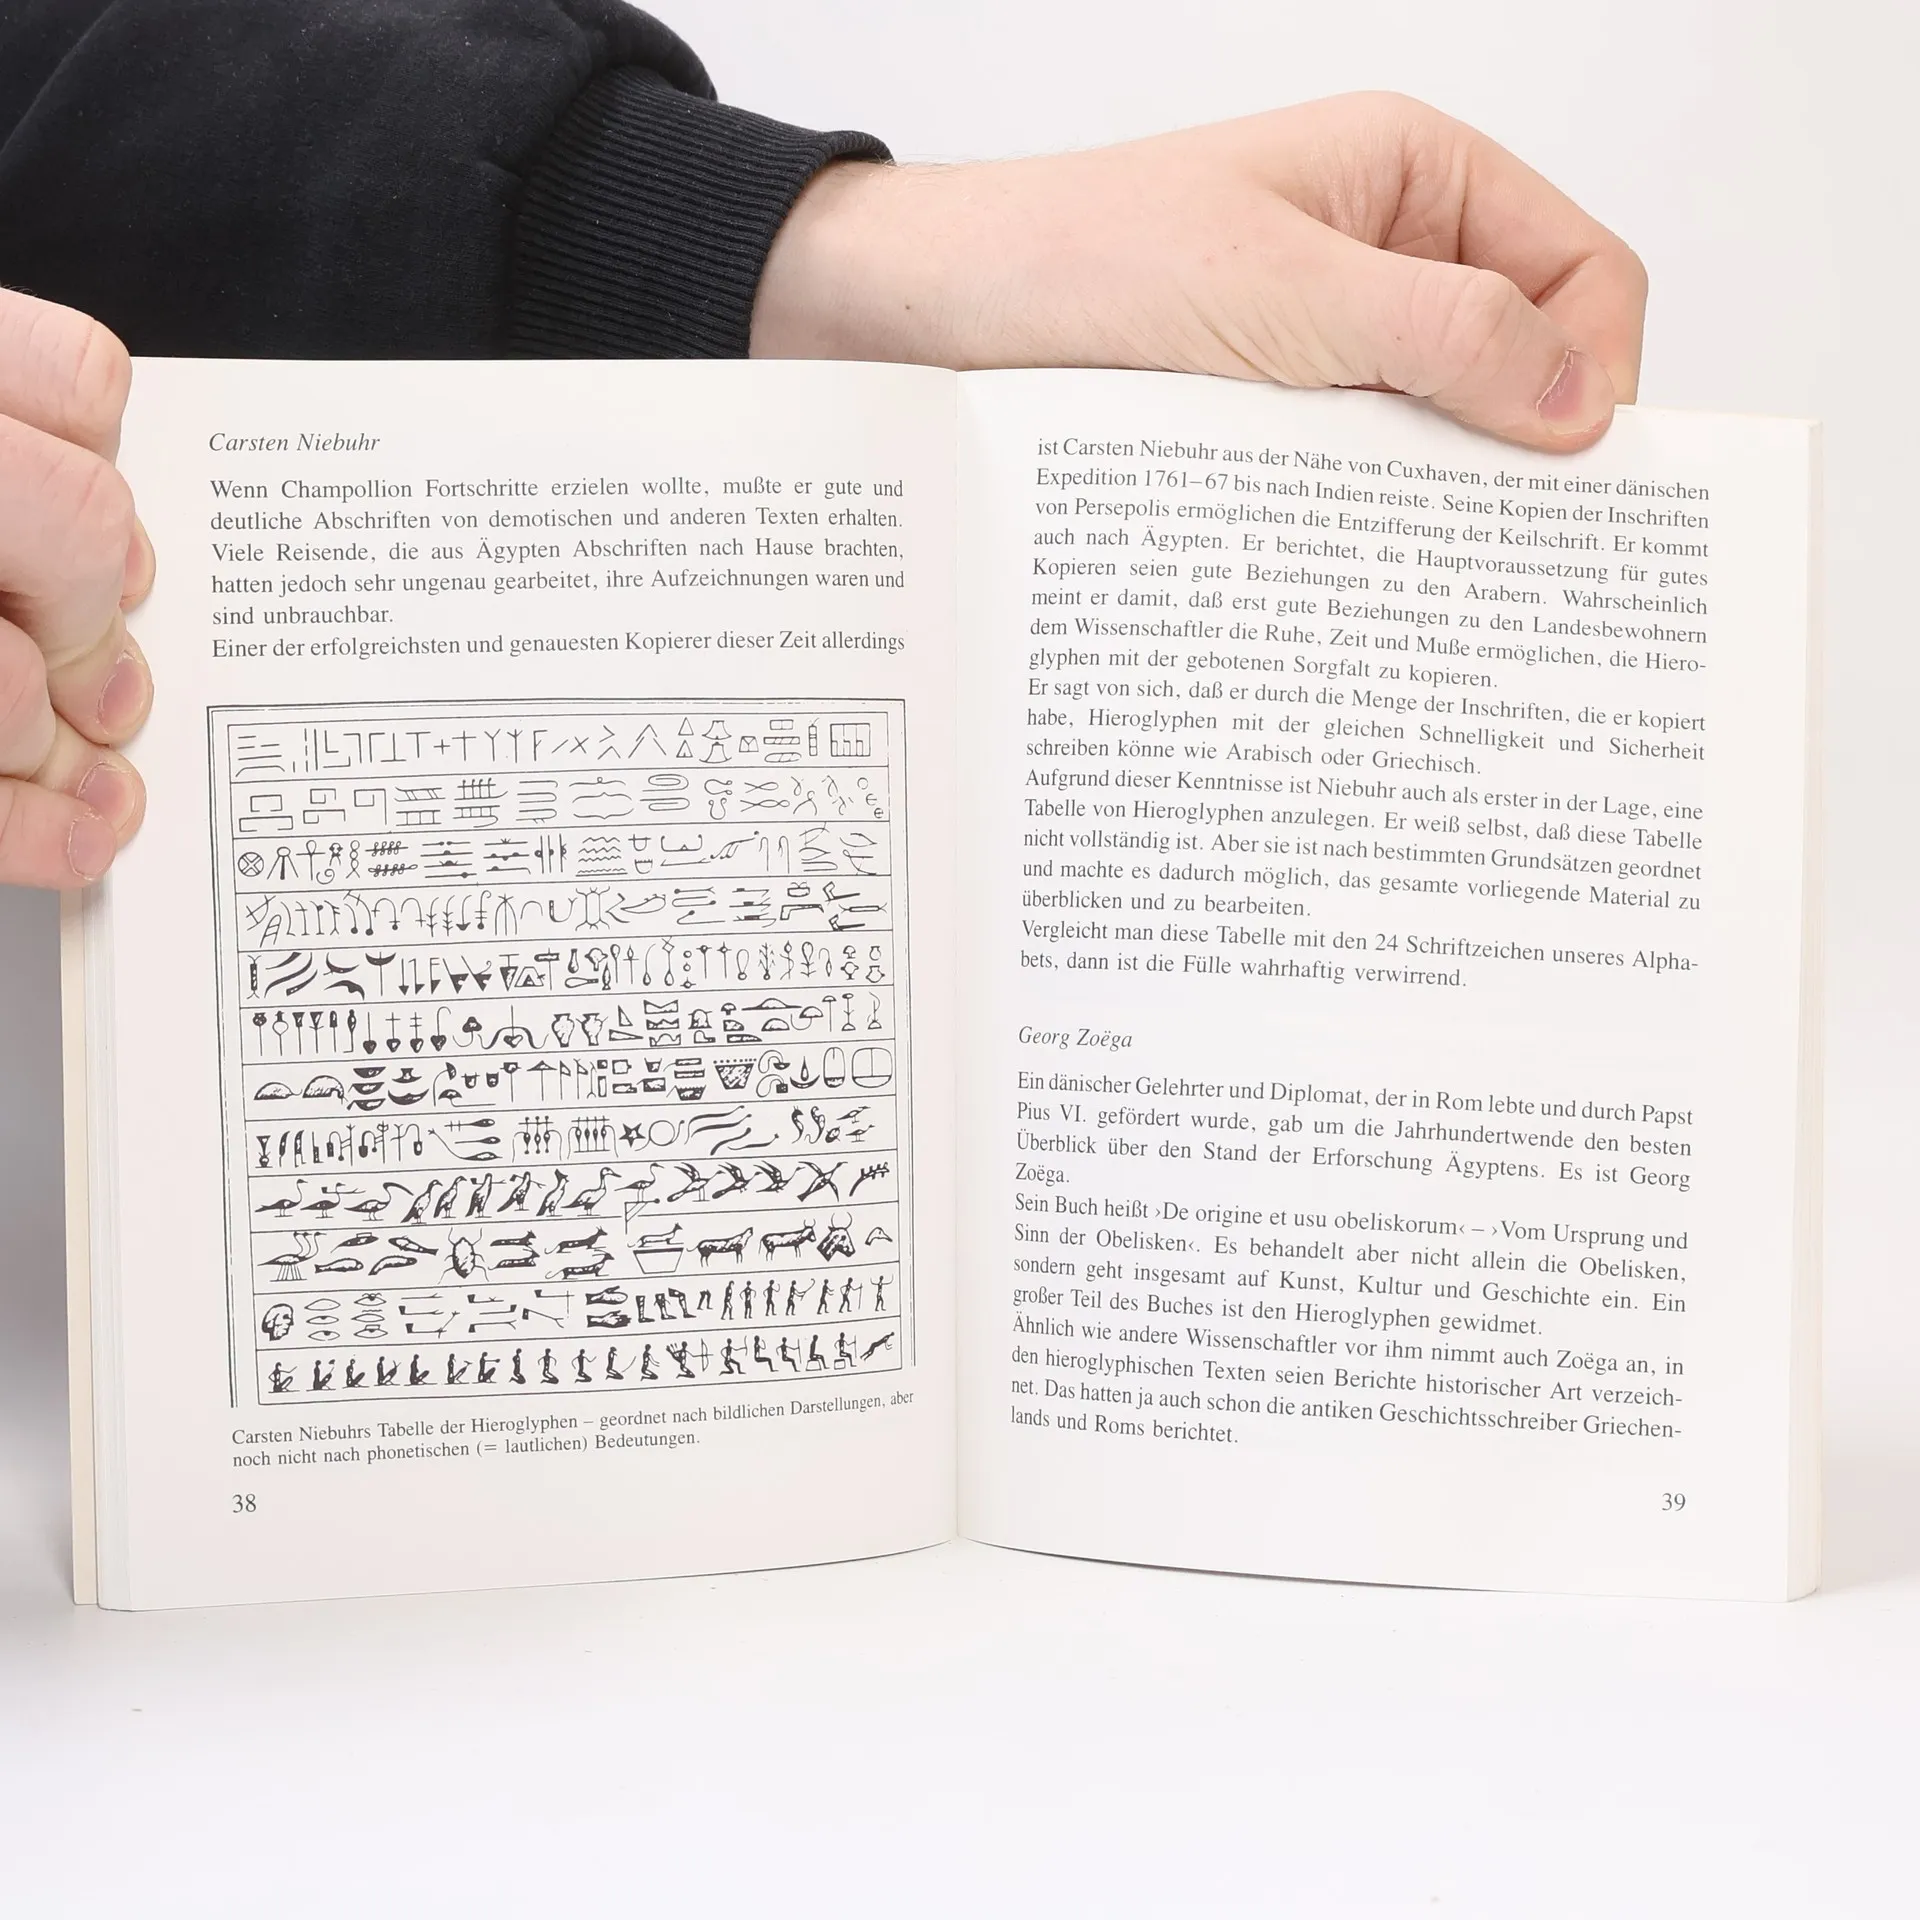 Carsten Niebuhr
Wenn Champollion Fortschritte erzielen wollte, mußte er gute und
deutliche Abschriften von demotischen und anderen Texten erhalten.
Viele Reisende, die aus Ägypten Abschriften nach Hause brachten,
hatten jedoch sehr ungenau gearbeitet, ihre Aufzeichnungen waren und
sind unbrauchbar.
Einer der erfolgreichsten und genauesten Kopierer dieser Zeit allerdings
Carsten Niebuhrs Tabelle der Hieroglyphen – geordnet nach bildlichen Darstellungen, aber
noch nicht nach phonetischen (= lautlichen) Bedeutungen.
38
ist Carsten Niebuhr aus der Nähe von Cuxhaven, der mit einer dänischen
Expedition 1761–67 bis nach Indien reiste. Seine Kopien der Inschriften
von Persepolis ermöglichen die Entzifferung der Keilschrift. Er kommt
auch nach Ägypten. Er berichtet, die Hauptvoraussetzung für gutes
Kopieren seien gute Beziehungen zu den Arabern. Wahrscheinlich
meint er damit, daß erst gute Beziehungen zu den Landesbewohnern
dem Wissenschaftler die Ruhe, Zeit und Muße ermöglichen, die Hiero-
glyphen mit der gebotenen Sorgfalt zu kopieren.
Er sagt von sich, daß er durch die Menge der Inschriften, die er kopiert
habe, Hieroglyphen mit der gleichen Schnelligkeit und Sicherheit
schreiben könne wie Arabisch oder Griechisch.
Aufgrund dieser Kenntnisse ist Niebuhr auch als erster in der Lage, eine
Tabelle von Hieroglyphen anzulegen. Er weiß selbst, daß diese Tabelle
nicht vollständig ist. Aber sie ist nach bestimmten Grundsätzen geordnet
und machte es dadurch möglich, das gesamte vorliegende Material zu
überblicken und zu bearbeiten.
Vergleicht man diese Tabelle mit den 24 Schriftzeichen unseres Alpha-
bets, dann ist die Fülle wahrhaftig verwirrend.
Georg Zoëga
Ein dänischer Gelehrter und Diplomat, der in Rom lebte und durch Papst
Pius VI. gefördert wurde, gab um die Jahrhundertwende den besten
Überblick über den Stand der Erforschung Ägyptens. Es ist Georg
Zoëga.
Sein Buch heißt ›De origine et usu obeliskorum‹ – ›Vom Ursprung und
Sinn der Obelisken‹. Es behandelt aber nicht allein die Obelisken,
sondern geht insgesamt auf Kunst, Kultur und Geschichte ein. Ein
großer Teil des Buches ist den Hieroglyphen gewidmet.
Ähnlich wie andere Wissenschaftler vor ihm nimmt auch Zoëga an, in
den hieroglyphischen Texten seien Berichte historischer Art verzeich-
net. Das hatten ja auch schon die antiken Geschichtsschreiber Griechen-
lands und Roms berichtet.
39